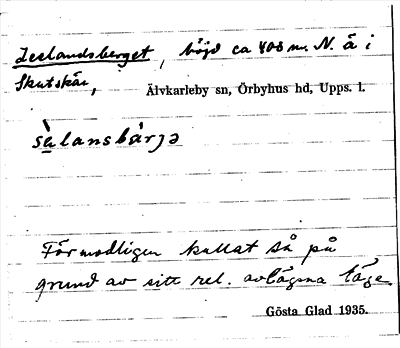 Seelandsberget, höjd ca 400 m. N. å i
Skutskär, Älvkarleby sn, Örbyhus hd, Upps. l.
sèlansbárjə
Förmodligen kallat så på
grund av sitt rel. avlägsna läge.
Gösta Glad 1935.